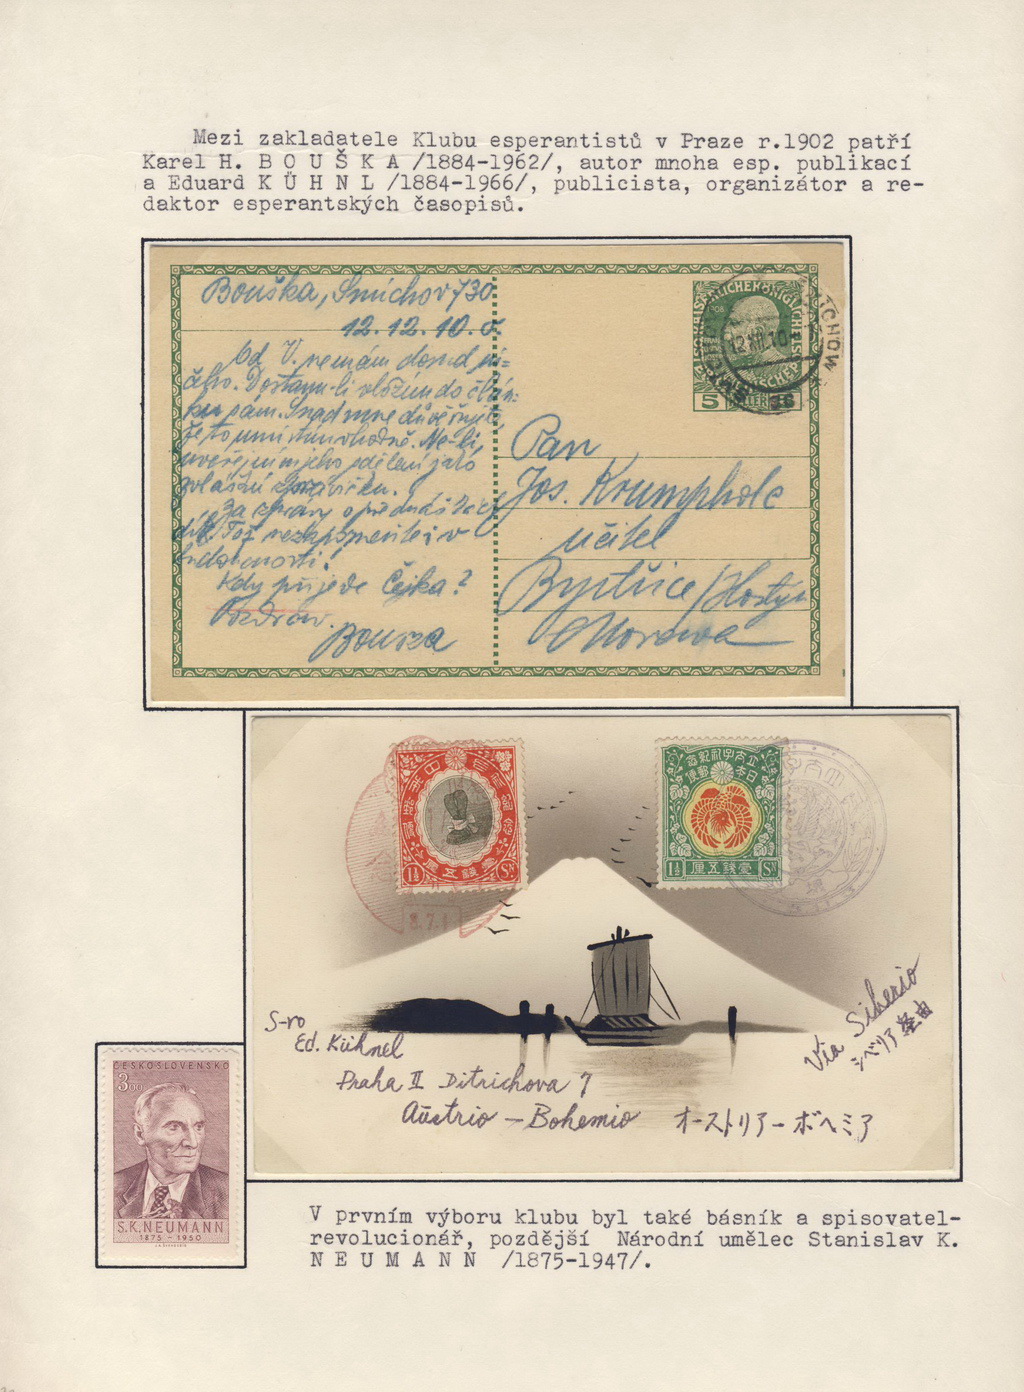 Mezi zakladatele Klubu esperantistů v Praze r.1902 patří
Karel H. B O U Š K A /1884-1962/, autor mnoha esp. publikací
a Eduard K Ü H N L /1884-1966/, publicista, organizátor a re-
daktor esperantských časopisů.
Bouška, Smíchov 730
12.12.10.
Od V. nemám dosud ni-
čeho. Dostanu-li vložím do člán-
ku sám. Snad mne důvěřujete,
že to umístím vhodně. Ne-li,
uveřejním jeho sdělení jako
zvláštní zprávičku.
Za zprávy o přednáš
díky. Též nezapomeňte i v
budoucnosti!
Kdy přijede Čejka?
Pozdrav.
Bouška
1908
5 HELLER 5
12 XII 10
Pan
Jos. Krumpholc
učitel
Bystřice/Hostýn
Morava
1½ 壹銭五厘 Sn
8.7.1
日本
郵便
1½ 壹銭五厘 Sn
S-ro
Ed. Kühnel
Praha II Ditrichova 7
Aŭstrio - Bohemio オーストリアーボヘミア
Via Siberio
シベリア経由
ČESKOSLOVENSKO
3.00
S.K.NEUMANN
1875 - 1950
V prvním výboru klubu byl také básník a spisovatel-
revolucionář, pozdější Národní umělec Stanislav K.
N E U M A N N /1875-1947/.